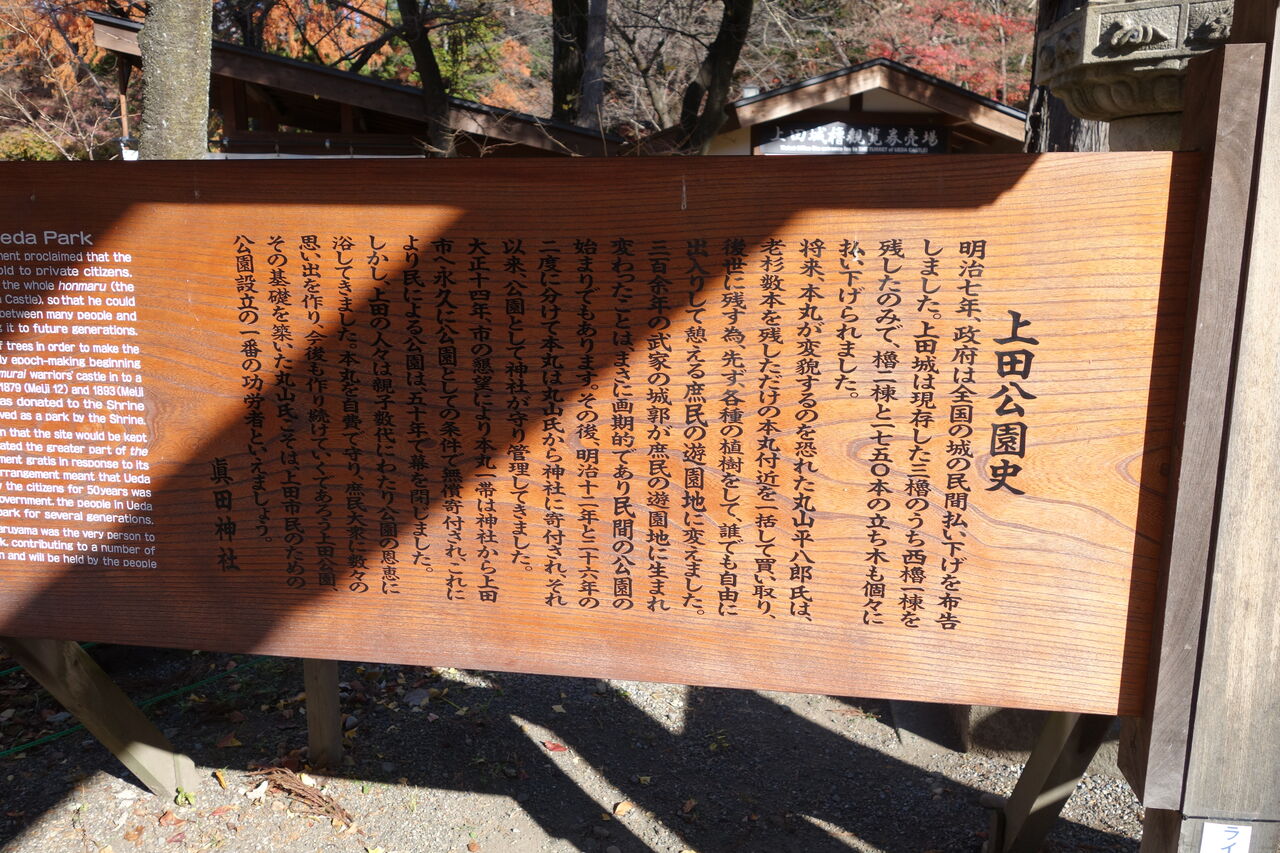 上田城櫓観覧券売場
上田公園史
明治七年、政府は全国の城の民間払い下げを布告
しました。上田城は現存した三櫓のうち西櫓一棟を
残したのみで、櫓一棟と一七五〇本の立ち木も個々に
払い下げられました。
将来、本丸が変貌するのを恐れた丸山平八郎氏は、
老杉数本を残しただけの本丸付近を一括して買い取り、
後世に残す為、先ず、各種の植樹をして、誰でも自由に
出入りして憩える庶民の遊園地に変えました。
三百余年の武家の城郭が庶民の遊園地に生まれ
変わったことは、まさに画期的であり民間の公園の
始まりでもあります。その後、明治十二年と二十六年の
二度に分けて本丸は丸山氏から神社に寄付され、それ
以来、公園として神社が守り管理してきました。
大正十四年、市の懇望により本丸一帯は神社から上田
市へ永久に公園としての条件で無償寄付され、これに
より民による公園は、五十年で幕を閉じました。
しかし、上田の人々は親子数代にわたり公園の恩恵に
浴してきました。本丸を自費で守り、庶民大衆に数々の
思い出を作り、今後も作り続けていくであろう上田公園、
その基礎を築いた丸山氏こそは、上田市民のための
公園設立の一番の功労者といえましょう。
眞田神社
eda Park
ent proclaimed that the
old to private citizens.
the whole honmaru (the
Castle), so that he could
between many people and
it to future generations.
f trees in order to make the
ly epoch-making beginning
murai warriors' castle in to a
1879 (Meiji 12) and 1893 (Meiji
as donated to the Shrine
ved as a park by the Shrine.
n that the site would be kept
ated the greater part of the
ment gratis in response to its
rrangement meant that Ueda
y the citizens for 50years was
overnment, the people in Ueda
park for several generations.
aruyama was the very person to
k, contributing to a number of
n and will be held by the people
ライ